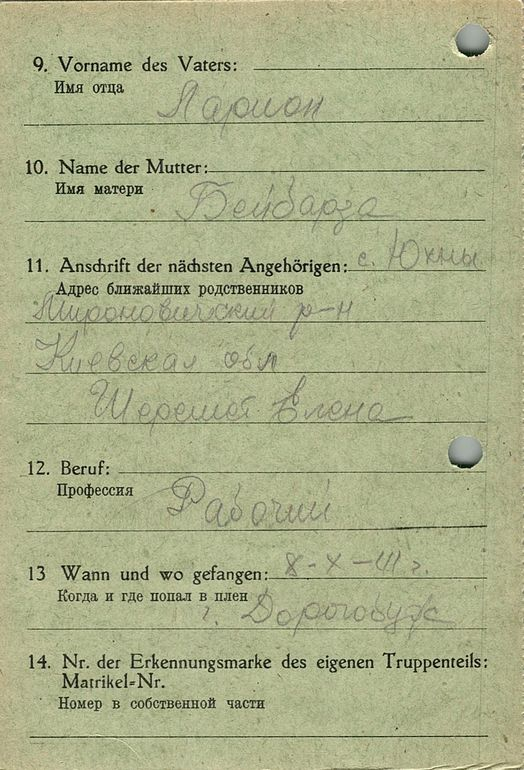 9. Vorname des Vaters:
Имя отца
Ларион
10. Name der Mutter:
Имя матери
Бейбарза
11. Anschrift der nächsten Angehörigen: с. Юхны
Адрес ближайших родственников
Мироновический р-н
Киевская обл
Елена
12. Beruf:
Профессия
Рабочий
13 Wann und wo gefangen: 8-X-41 г.
Когда и где попал в плен
г. Дорогобуж
14. Nr. der Erkennungsmarke des eigenen Truppenteils:
Matrikel-Nr.
Номер в собственной части